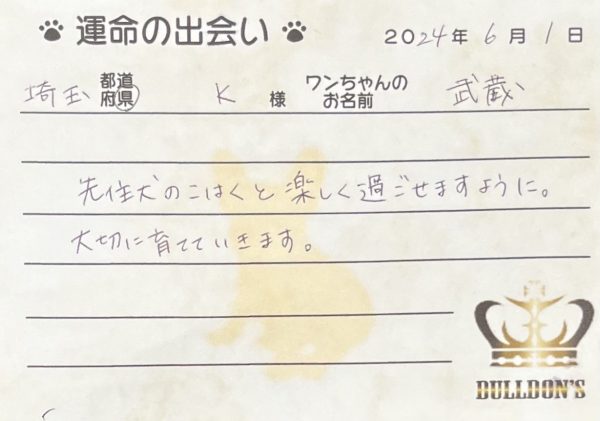 運命の出会い 2024年 6月 1日
埼玉 都道府県 K 様 ワンちゃんのお名前 武蔵
先住犬のこはくと楽しく過ごせますように。
大切に育てていきます。
BULLDON'S